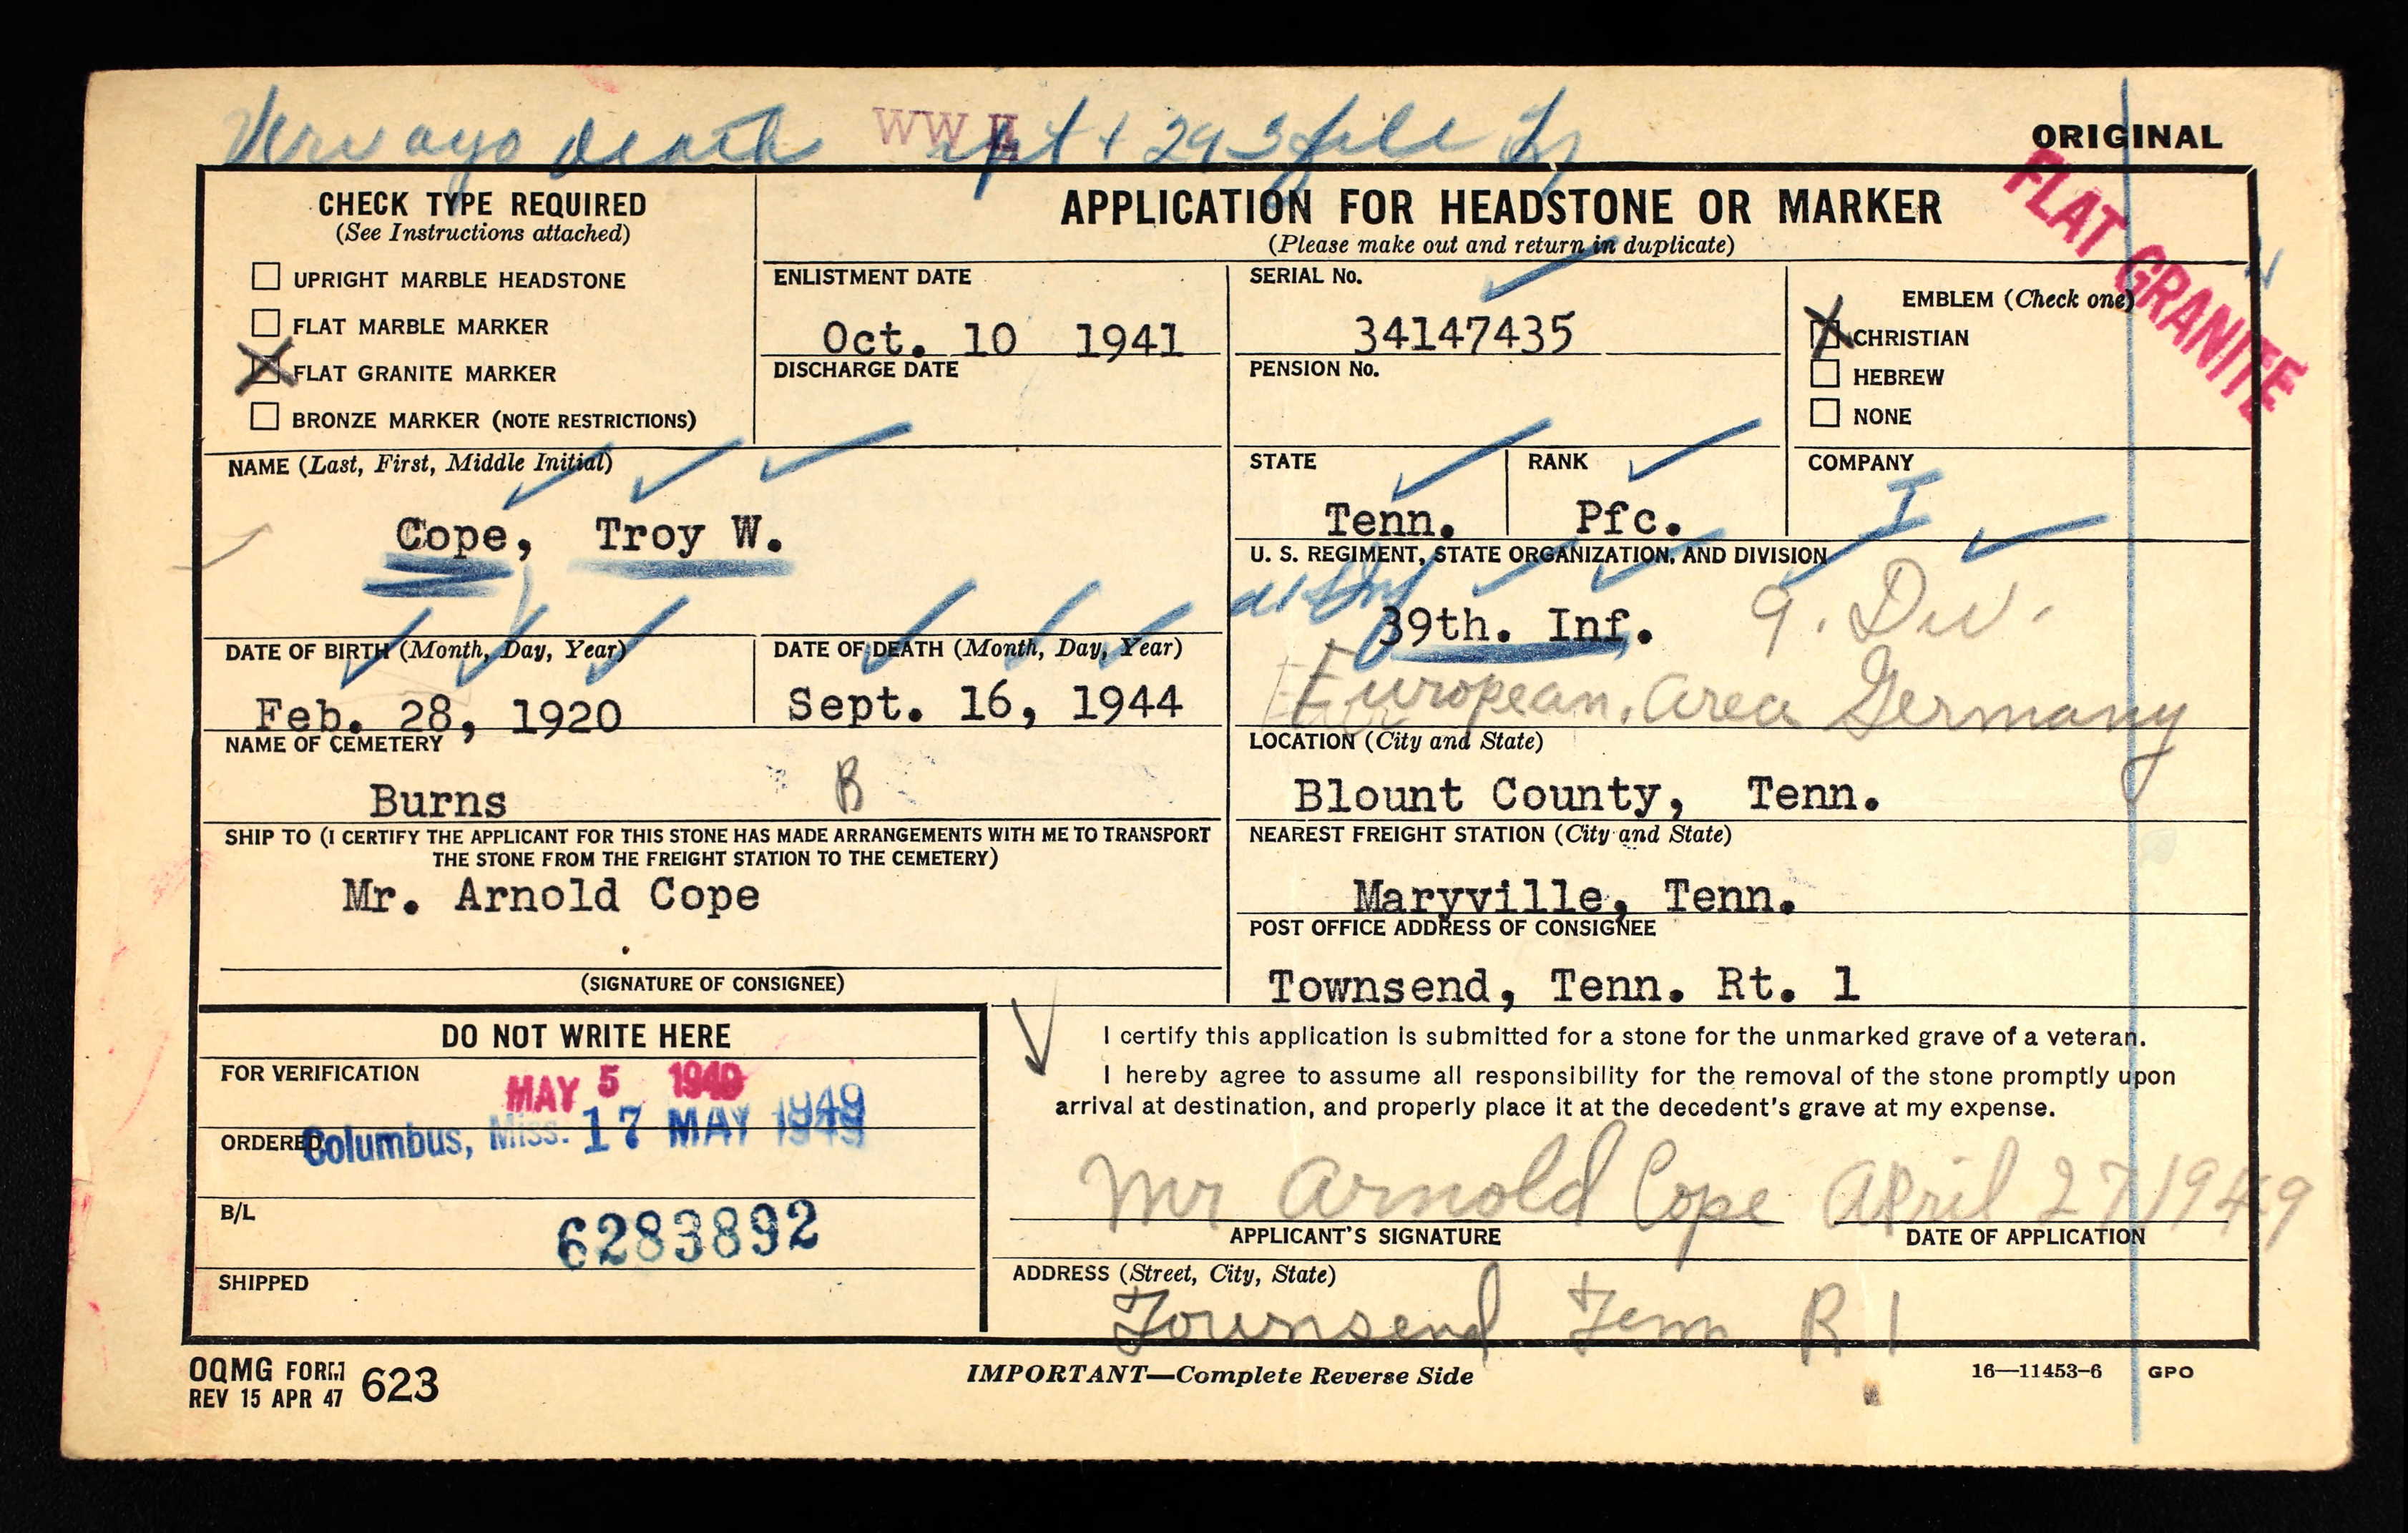 death WW II file
ORIGINAL
FLAT GRANITE
CHECK TYPE REQUIRED
(See Instructions attached)
UPRIGHT MARBLE HEADSTONE
FLAT MARBLE MARKER
X FLAT GRANITE MARKER
BRONZE MARKER (NOTE RESTRICTIONS)
APPLICATION FOR HEADSTONE OR MARKER
(Please make out and return in duplicate)
ENLISTMENT DATE
Oct. 10 1941
DISCHARGE DATE
SERIAL No.
34147435
PENSION No.
EMBLEM (Check one)
X CHRISTIAN
HEBREW
NONE
NAME (Last, First, Middle Initial)
Cope, Troy W.
STATE
Tenn.
RANK
Pfc.
COMPANY
I
U. S. REGIMENT, STATE ORGANIZATION, AND DIVISION
39th. Inf. 9. Div.
European. Area Germany
DATE OF BIRTH (Month, Day, Year)
Feb. 28, 1920
DATE OF DEATH (Month, Day, Year)
Sept. 16, 1944
NAME OF CEMETERY
Burns B
LOCATION (City and State)
Blount County, Tenn.
SHIP TO (I CERTIFY THE APPLICANT FOR THIS STONE HAS MADE ARRANGEMENTS WITH ME TO TRANSPORT
THE STONE FROM THE FREIGHT STATION TO THE CEMETERY)
Mr. Arnold Cope
(SIGNATURE OF CONSIGNEE)
NEAREST FREIGHT STATION (City and State)
Maryville, Tenn.
POST OFFICE ADDRESS OF CONSIGNEE
Townsend, Tenn. Rt. 1
DO NOT WRITE HERE
FOR VERIFICATION
MAY 5 1949
ORDERED
Columbus, Miss. 17 MAY 1949
B/L
6283892
SHIPPED
I certify this application is submitted for a stone for the unmarked grave of a veteran.
I hereby agree to assume all responsibility for the removal of the stone promptly upon
arrival at destination, and properly place it at the decedent's grave at my expense.
Mr Arnold Cope April 27 1949
APPLICANT'S SIGNATURE
DATE OF APPLICATION
ADDRESS (Street, City, State)
Townsend Tenn R 1
OQMG FORM 623
REV 15 APR 47
IMPORTANT—Complete Reverse Side
16—11453-6 GPO